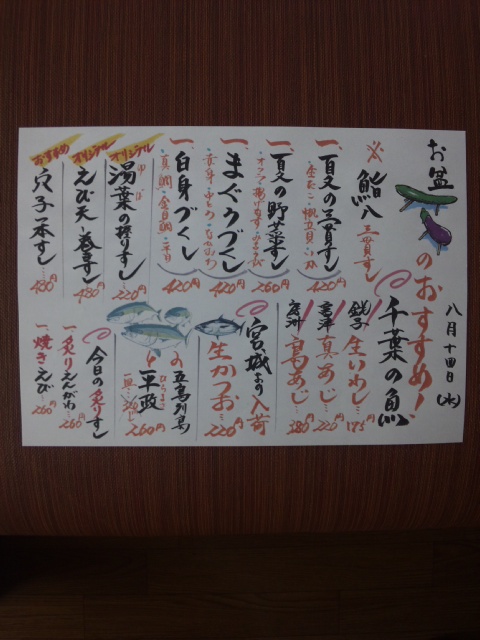 お盆のおすすめ!
八月十四日(水)
※鮨八三貫すし
一、夏の三貫すし
420円
一、夏の野菜すし
260円
一、まぐろづくし
420円
一、白身づくし
真鯛・金目鯛・平目
420円
オリジナル
湯葉の握りすし
ゆば
220円
オリジナル
えび天・巻すし
480円
おすすめ
穴子一本すし
480円
千葉の魚
銚子
生いわし
175円
富津
真あじ
220円
房州
白あじ
280円
宮城より入荷
生かつお
220円
五島列島の
平政
ひらまさ
260円
今日の炙りすし
一、炙りえんがわ
260円
一、焼きえび
260円